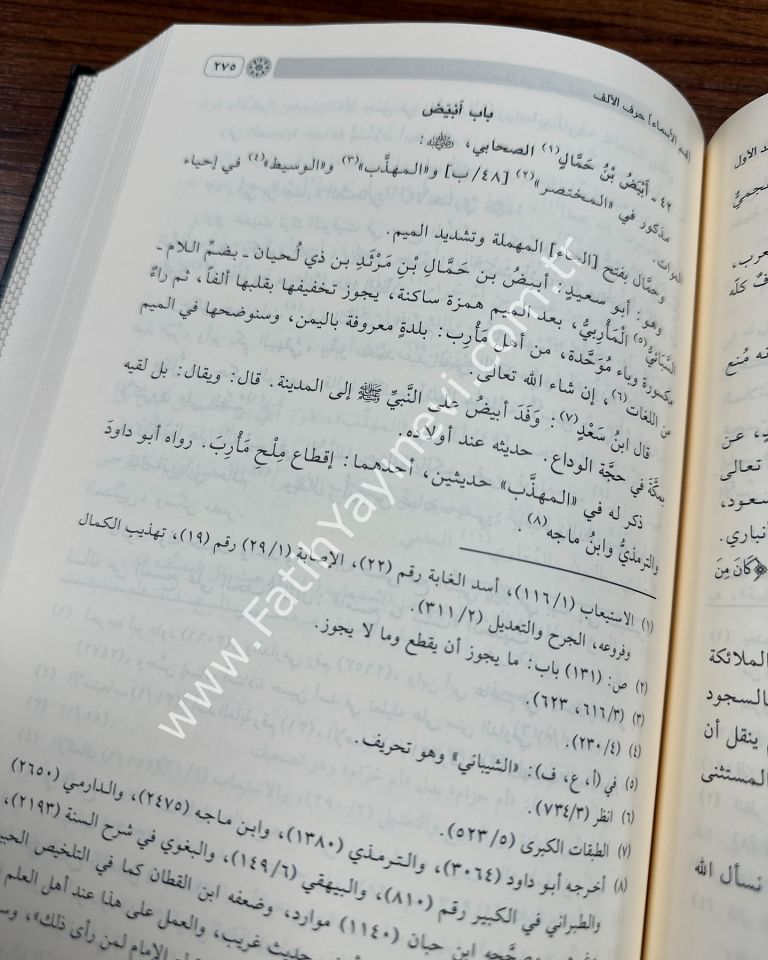 [قسم الأسماء] حرف الألف
٢٧٥
باب أَبْيَض
٤٢ - أَبْيَضُ بْنُ حَمَّالٍ(١) الصحابي، ﷺ:
مذكور في «المختصر»(٢) [٤٨/ب] و«المهذَّب»(٣) و«الوسيط»(٤) في إحياء
الموات.
وحمَّال بفتح [الحاء] المهملة وتشديد الميم.
وهو: أبو سعيدٍ: أبيضُ بن حَمَّالِ بْنِ مَرْثَدِ بن ذي لُحيان ـ بضمِّ اللام ـ
السَّبَائيُّ(٥) الْمَأْرِبيُّ، بعد الميم همزة ساكنة، يجوز تخفيفها بقلبها ألفاً، ثم راءٌ
مكسورة وباء مُوَحَّدة، من أهل مَأْرِب: بلدةٍ معروفة باليمن، وسنوضحها في الميم
من اللغات(٦)، إن شاء الله تعالى.
قال ابنُ سَعْدٍ(٧): وَفَدَ أبيضُ على النَّبيِّ ﷺ إلى المدينة. قال: ويقال: بل لقيه
بمكَّة في حجَّة الوداع. حديثه عند أولاده.
ذكر له في «المهذَّب» حديثين، أحدهما: إقطاع مِلْحِ مَأْرِبَ. رواه أبو داودَ
والترمذيُّ وابنُ ماجه(٨).
(١) الاستيعاب (١١٦/١)، أسد الغابة رقم (٢٢)، الإصابة (٢٩/١) رقم (١٩)، تهذيب الكمال
وفروعه، الجرح والتعديل (٣١١/٢).
(٢) ص: (١٣١) باب: ما يجوز أن يقطع وما لا يجوز.
(٣) (٦١٦/٣، ٦٢٣).
(٤) (٢٣٠/٤).
(٥) في (أ، ع، ف): «الشيباني» وهو تحريف.
(٦) انظر (٧٣٤/٣).
(٧) الطبقات الكبرى (٥٢٣/٥).
(٨) أخرجه أبو داود (٣٠٦٤)، والترمذي (١٣٨٠)، وابن ماجه (٢٤٧٥)، والدارمي (٢٦٥٠)
والطبراني في الكبير رقم (٨١٠)، والبيهقي (١٤٩/٦)، والبغوي في شرح السنة (٢١٩٣)،
وصححه ابن حبان (١١٤٠) موارد، وضعفه ابن القطان كما في التلخيص
حديث غريب، والعمل على هذا عند أهل العلم
الإمام لمن رأى ذلك»،
www.FatihYayinevi.com.tr
عرب،
كلّه
مُنع
عن
تعالى
سعود،
أنباري.
﴿كَانَ مِنَ
الملائكة
بالسجود
ينقل أن
المستثنى
نسأل الله